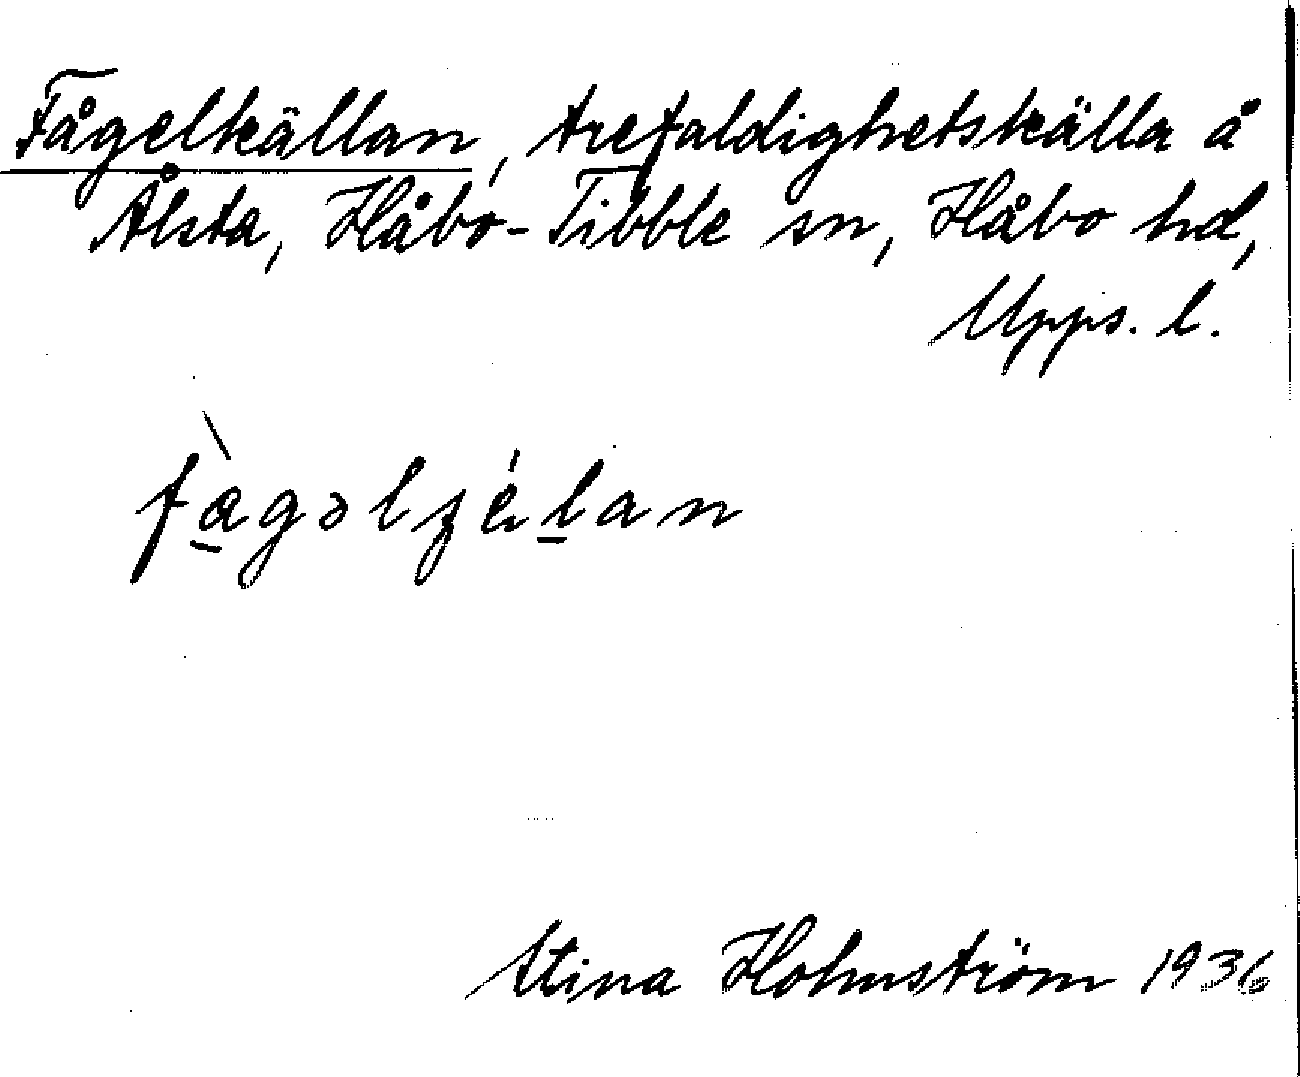 Fågelkällan, trefaldighetskälla å
Ålsta, Håbo-Tibble sn, Håbo hd,
Upps. l.
fàgəlʒélan
Stina Holmström 1936